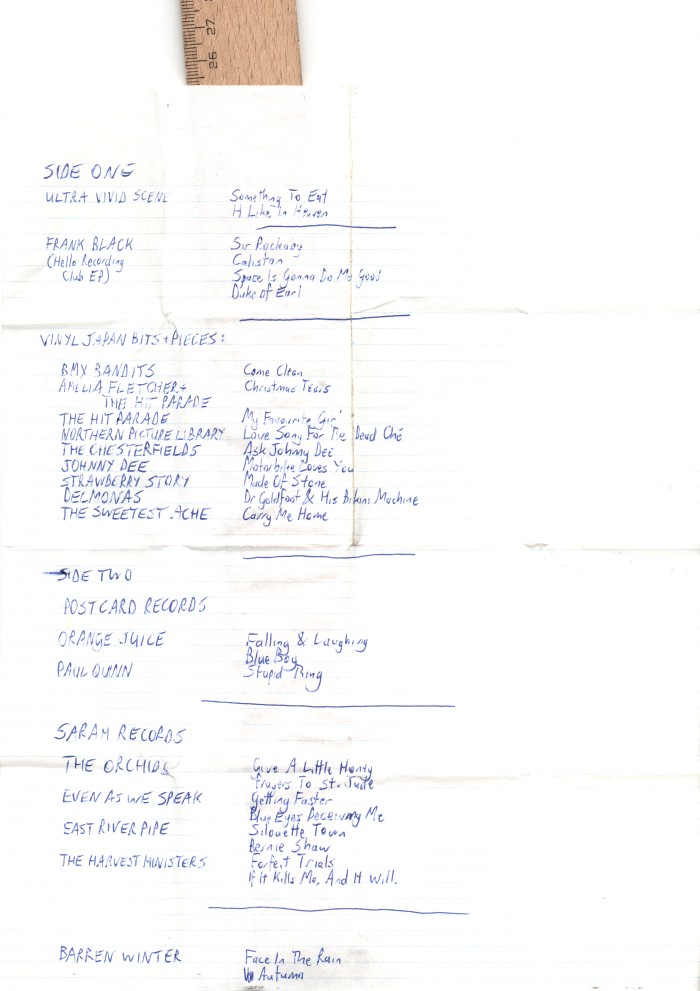 26 27
SIDE ONE
ULTRA VIVID SCENE Something To Eat
H Like In Heaven
FRANK BLACK Sir Rockaby
(Hello Recording Calistan
Club EP) Space Is Gonna Do Me Good
Duke of Earl
VINYL JAPAN BITS + PIECES:
BMX BANDITS Come Clean
AMELIA FLETCHER + Christmas Tears
THE HIT PARADE
THE HIT PARADE My Favourite Girl
NORTHERN PICTURE LIBRARY Love Song For The Dead Ché
THE CHESTERFIELDS Ask Johnny Dee
JOHNNY DEE Motorbike Loves You
STRAWBERRY STORY Made Of Stone
DELMONAS Dr Goldfoot & His Bikini Machine
THE SWEETEST ACHE Carry Me Home
SIDE TWO
POSTCARD RECORDS
ORANGE JUICE Falling & Laughing
Blue Boy
PAUL QUINN Stupid Thing
SARAH RECORDS
THE ORCHIDS Give A Little Honey
Prayers To St. Jude
EVEN AS WE SPEAK Getting Faster
Blue Eyes Deceiving Me
EAST RIVER PIPE Silouette Town
Bernie Shaw
THE HARVEST MINISTERS Forfeit Trials
If It Kills Me, And It Will.
BARREN WINTER Face In The Rain
Autumn